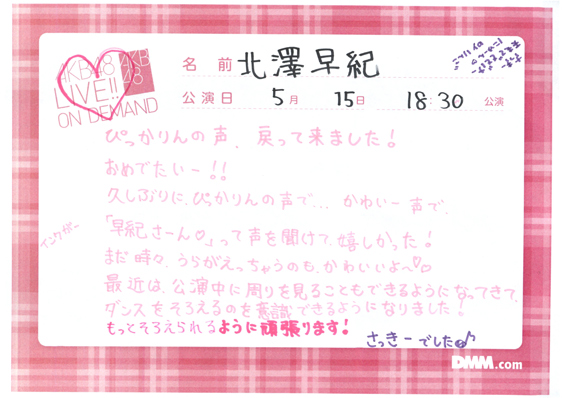 AKB48
LIVE!!
ON DEMAND
AKB
48
名前 北澤早紀
公演日 5月 15日 18:30 公演
ぴっかりんの声、戻って来ました!
おめでたいー!!
久しぶりに、ぴっかりんの声で... かわいー声で、
「早紀さーん♡」って声を聞けて、嬉しかった!
まだ時々、うらがえっちゃうのも、かわいいよ〜♡
最近は、公演中に周りを見ることもできるようになってきて、
ダンスをそろえるのを意識できるようになりました!
もっとそろえられるように頑張ります!
インクがー
さっきーでした♪
DMM.com